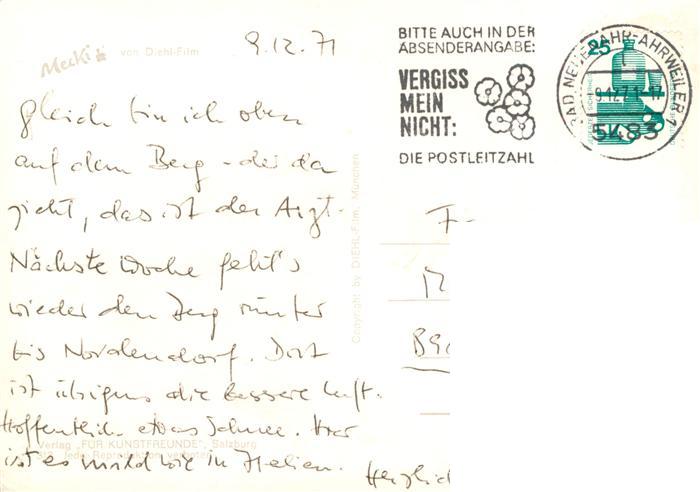 Mecki
von Diehl-Film
9.12.71
gleich bin ich oben
auf dem Berg - der da
zieht, das ist der Arzt.
Nächste Woche geht's
wieder den Berg runter
bis Nordendorf. Dort
ist übrigens die bessere Luft.
Hoffentlich etwas Schnee. Hier
ist es mild wie in Italien.
Herzlich
Verlag "FÜR KUNSTFREUNDE", Salzburg
Jede Reproduktion verboten
Copyright by DIEHL-Film, München
BITTE AUCH IN DER
ABSENDERANGABE:
VERGISS
MEIN
NICHT:
DIE POSTLEITZAHL
BAD NEUENAHR-AHRWEILER 1
25
9.12.71-17
5483
F-